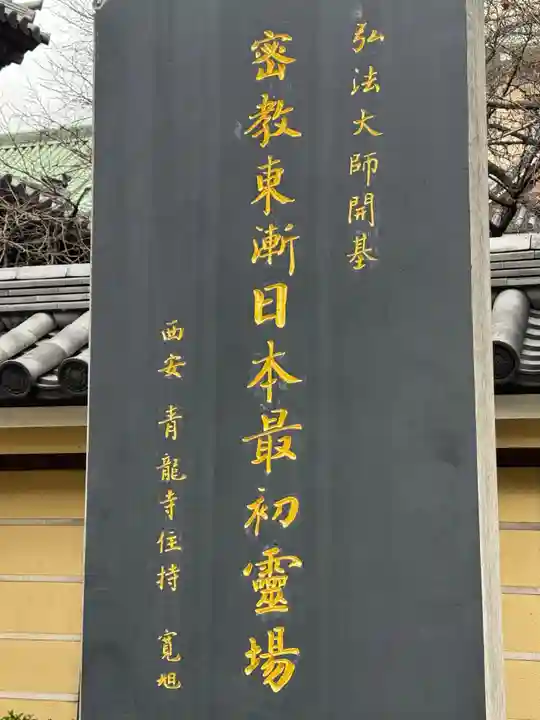 弘法大師開基
密教東漸日本最初靈場
西安 青龍寺住持 寛旭